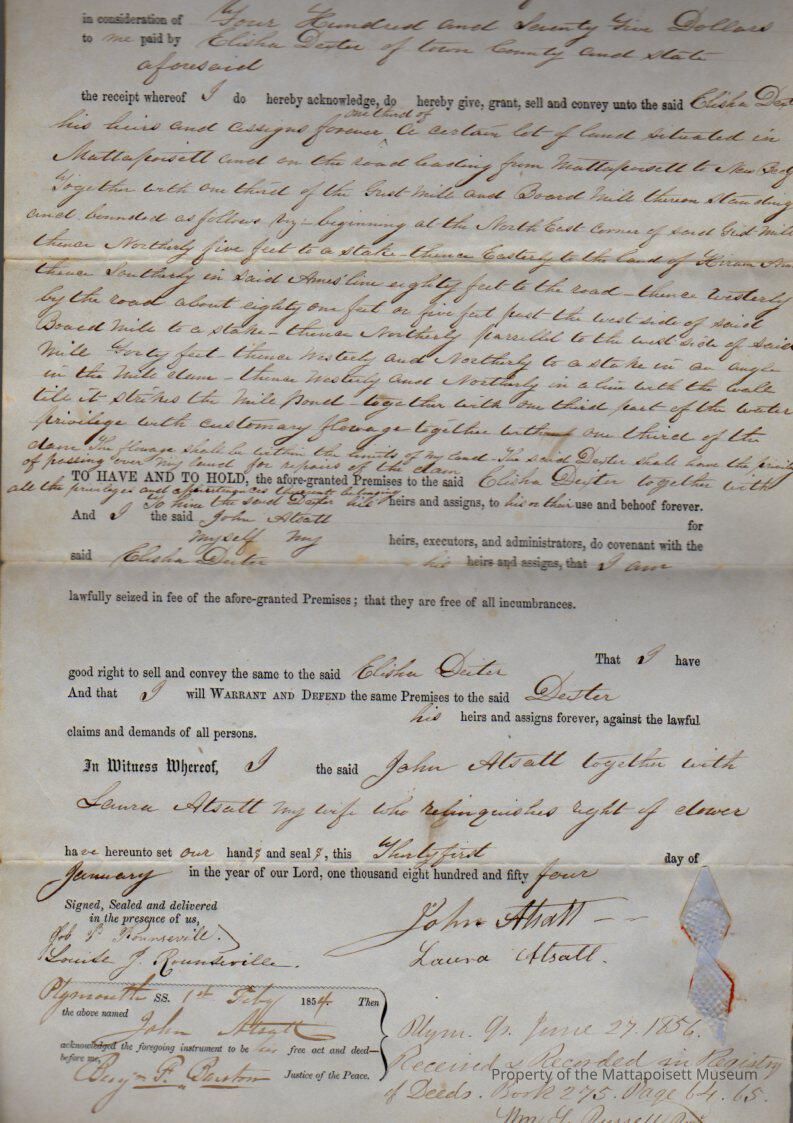 in consideration of Four Hundred and Seventy Five Dollars
to me paid by Elisha Dexter of town County and state
aforesaid
the receipt whereof I do hereby acknowledge, do hereby give, grant, sell and convey unto the said Elisha Dext
one third of
his heirs and assigns forever, a certain lot of land situated in
Mattapoisett and on the road leading from Mattapoisett to New Bedf
Together with one third of the Grist Mill and Board Mill thereon standing
and bounded as follows viz- beginning at the North East corner of said Grist Mill
thence Northerly five feet to a stake- thence Easterly to the land of Hiram Am
thence Southerly in said Ames' line eighty feet to the road- thence Westerly
by the road about eighty one feet or five feet past the west side of said
Board Mill to a stake- thence Northerly parrellel to the west side of said
Mill Forty feet- thence Westerly and Northerly to a stake in an angle
in the Mill dam- thence Westerly and Northerly in a line with the wall
till it strikes the Mill Pond- together with one third part of the water
privilege with customary flowage together with one third of the
dam The flowage shall be within the limits of my land- The said Dexter shall have the privileg
of passing over my land for repairs of the dam
TO HAVE AND TO HOLD, the afore-granted Premises to the said Elisha Dexter together with
all the privileges and appurtenances thereunto belonging
To him the said Dexter his heirs and assigns, to his or their use and behoof forever.
And I the said John Atsatt for
myself my heirs, executors, and administrators, do covenant with the
said Elisha Dexter his heirs and assigns, that I am
lawfully seized in fee of the afore-granted Premises; that they are free of all incumbrances.
That I have
good right to sell and convey the same to the said Elisha Dexter
And that I will WARRANT AND DEFEND the same Premises to the said Dexter
his heirs and assigns forever, against the lawful
claims and demands of all persons.
In Witness Whereof, I the said John Atsatt together with
Laura Atsatt my wife who relinquishes right of dower
have hereunto set our hands and seals, this Thirty first day of
January in the year of our Lord, one thousand eight hundred and fifty four
Signed, Sealed and delivered
in the presence of us,
Rounsevill.
Louise J. Rounseville.
John Atsatt
Laura Atsatt.
Plymouth SS. 1st Feby 1854. Then
the above named
John Atsatt
acknowledged the foregoing instrument to be his free act and deed—
before me,
Benj F. Barstow Justice of the Peace.
Plym. Ss. June 27. 1856.
Received & Recorded in Registry
of Deeds. Book 275. Page 64. 65.
Wm S. Russell
Property of the Mattapoisett Museum